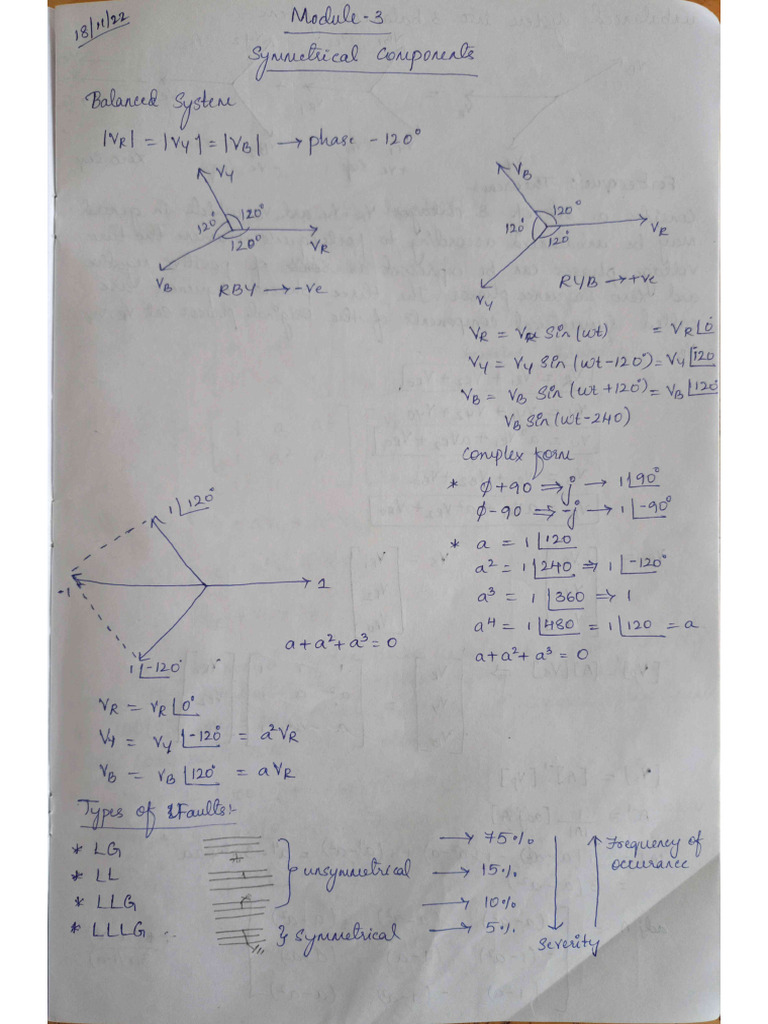 18/11/22
Module-3
Symmetrical Components
Balanced System
|VR| = |VY| = |VB| → phase -120°
VY
120°
120°
120°
VR
VB
RBY → -ve
VB
120°
120°
120°
VR
VY
RYB → +ve
VR = VR Sin(wt) = VR∠0°
VY = VY Sin(wt-120°) = VY∠120
VB = VB Sin(wt+120°) = VB∠120°
VB Sin(wt-240)
Complex form
* ϕ+90 ⇒ j → 1∠90°
ϕ-90 ⇒ -j → 1∠-90°
* a = 1∠120
a² = 1∠240 ⇒ 1∠-120°
a³ = 1∠360 ⇒ 1
a⁴ = 1∠480 = 1∠120 = a
a+a²+a³=0
1∠120°
-1
1
1∠-120°
a+a²+a³=0
VR = VR∠0°
VY = VY∠-120° = a²VR
VB = VB∠120° = aVR
Types of Faults:-
* LG
* LL
* LLG
* LLLG
} unsymmetrical
} Symmetrical
→ 75%
→ 15%
→ 10%
→ 5%
Severity
Frequency of
occurance